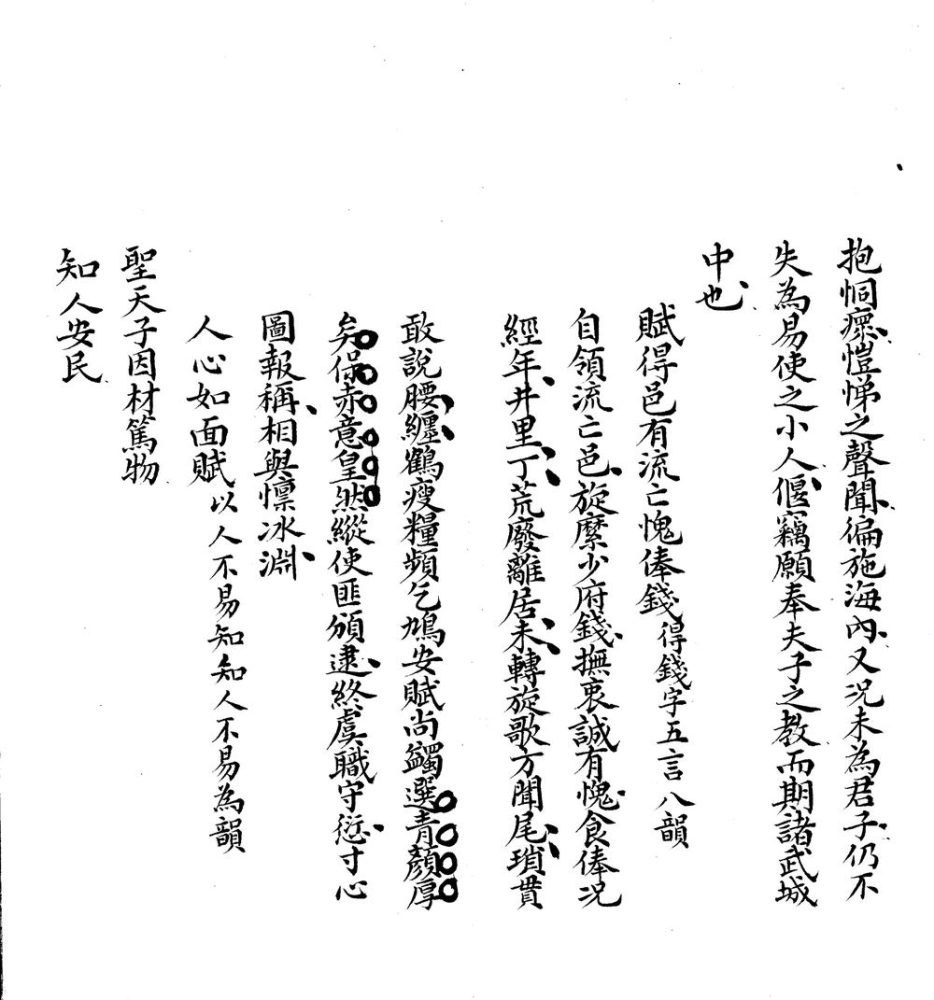 抱恫瘝愷悌之聲聞徧施海內又況未為君子仍不
失為易使之小人偃竊願奉夫子之教而期諸武城
中也
賦得邑有流亡愧俸錢得錢字五言八韻
自領流亡邑旋縻少府錢撫衷誠有愧食俸況
經年井里丁荒廢離居未轉旋歌方聞尾瑣貫
敢說腰纏鶴瘦糧頻乞鳩安賦尚蠲選青顏厚
矣保赤意皇然縱使匪頒逮終虞職守愆寸心
圖報稱相與懍冰淵
人心如面賦以人不易知知人不易為韻
聖天子因材篤物
知人安民